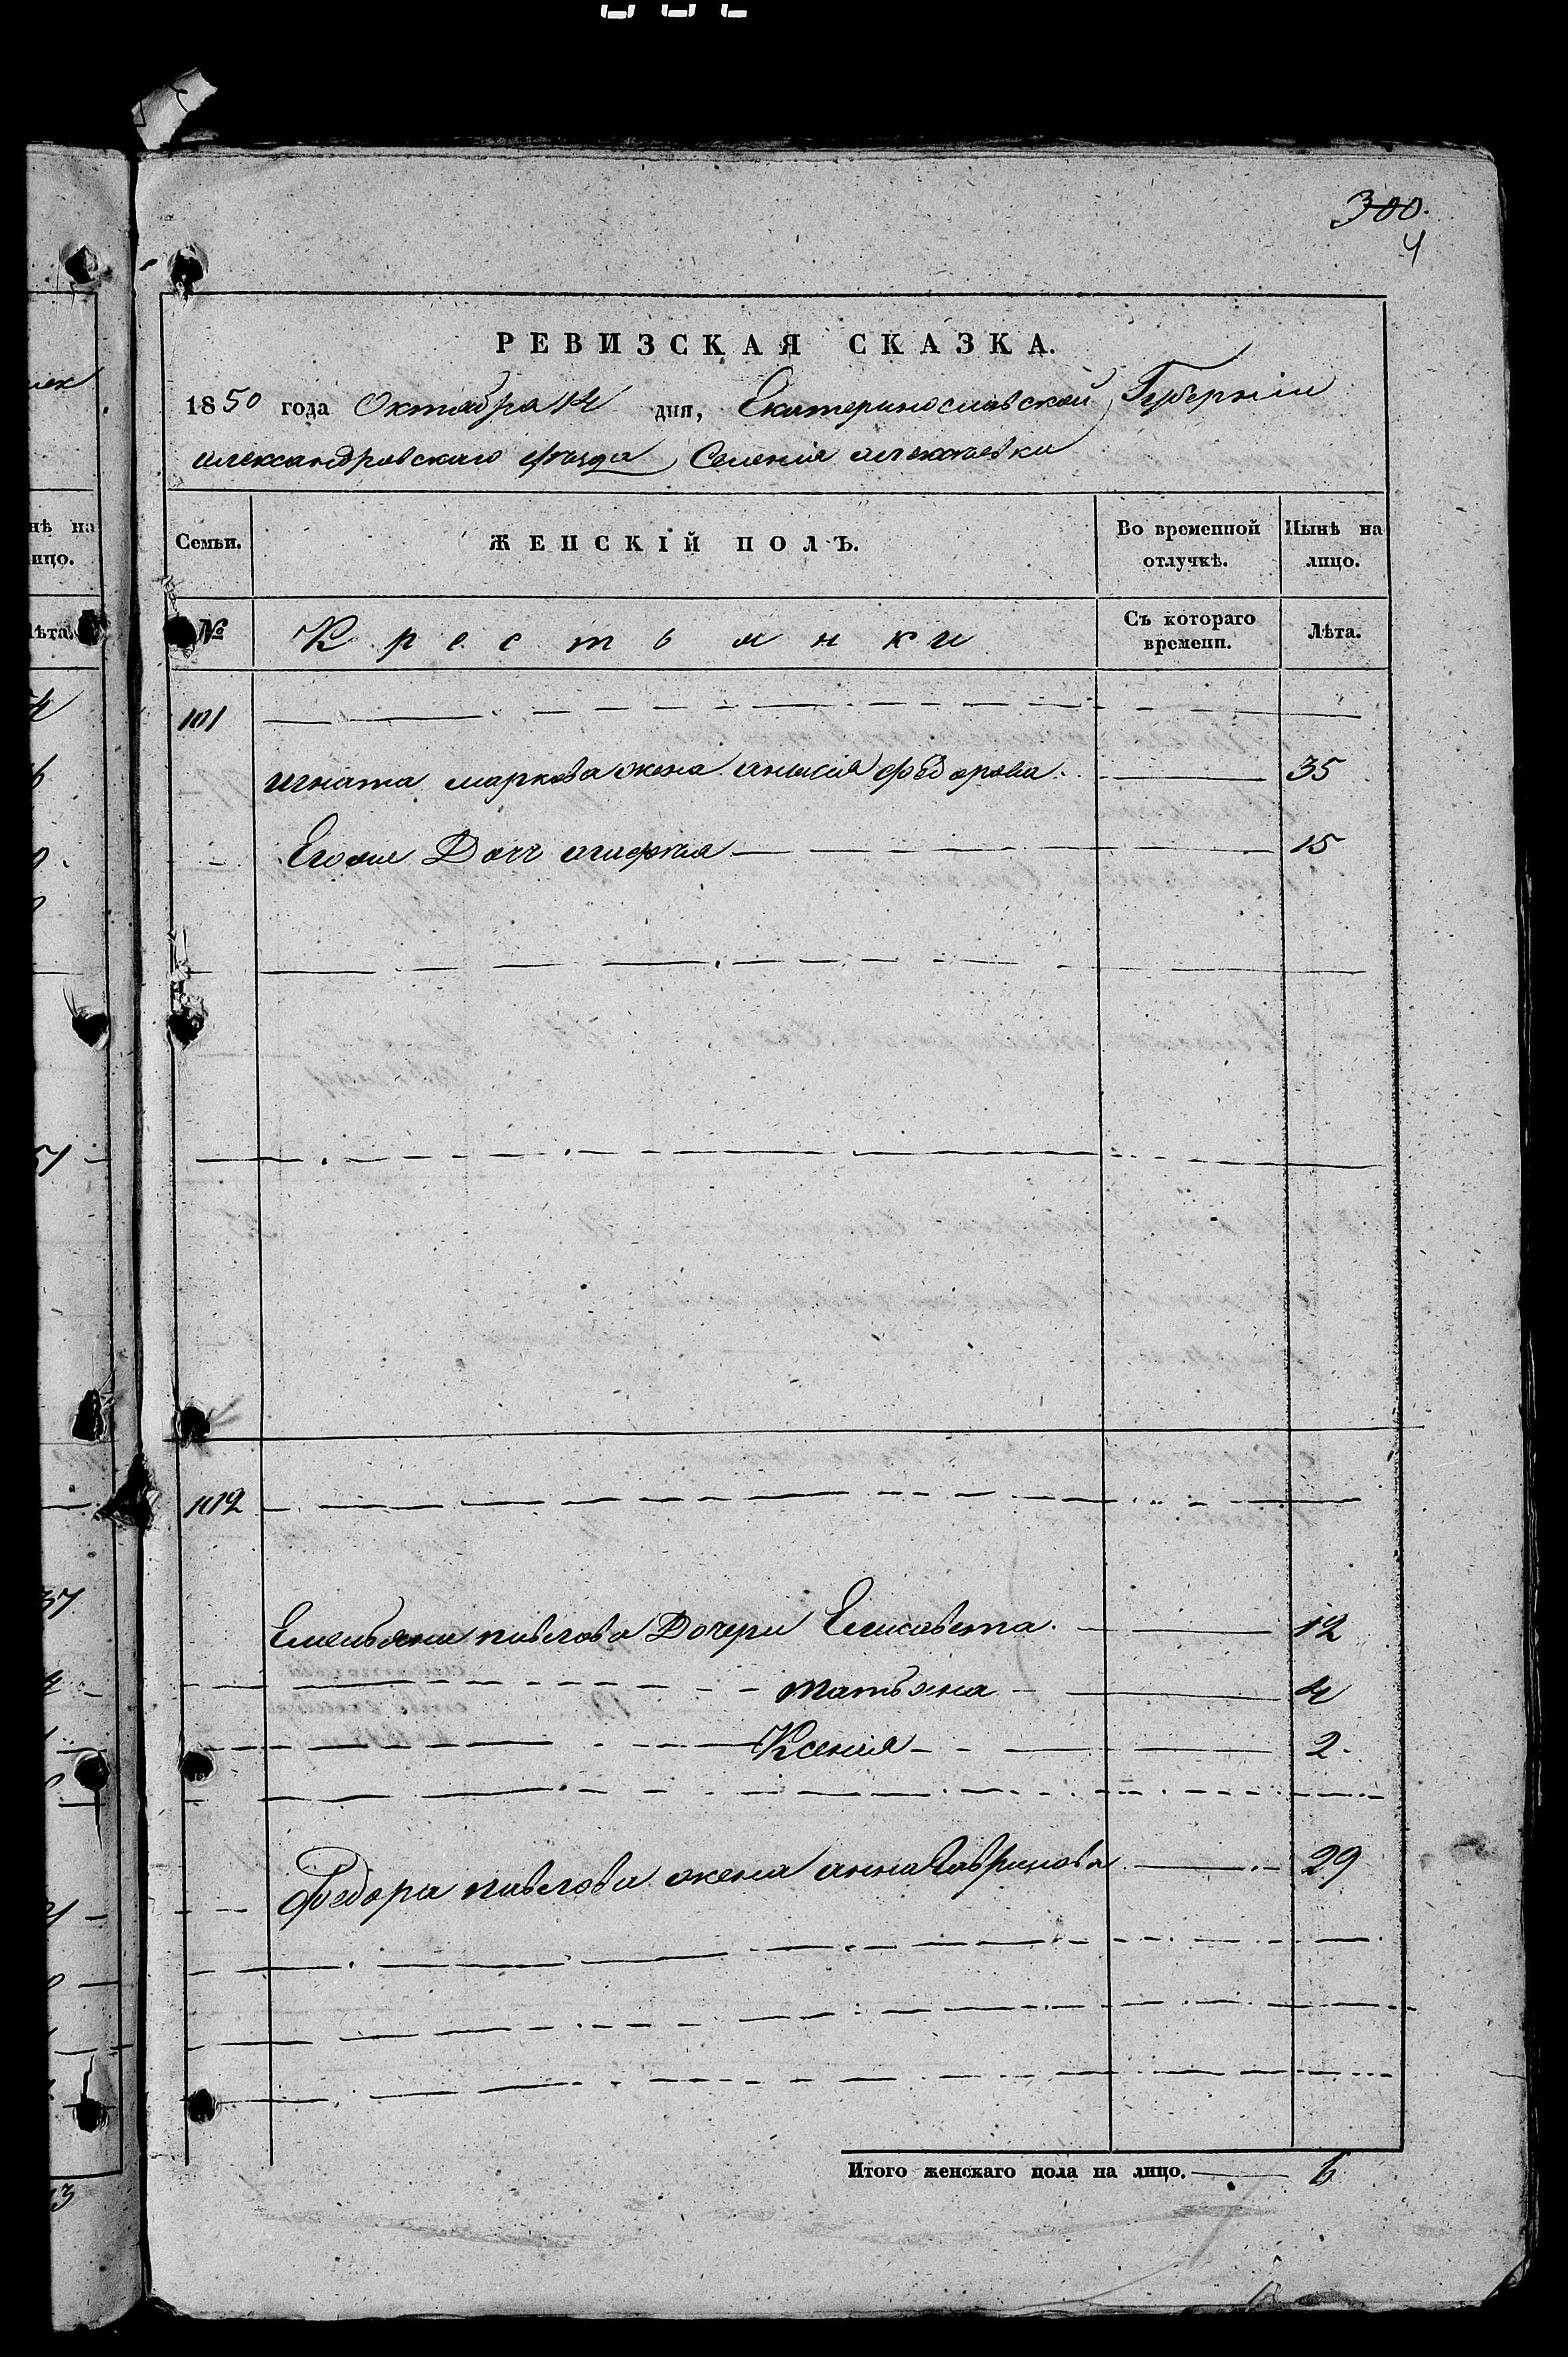 300.
4
РЕВИЗСКАЯ СКАЗКА.
1850 года Октября 14 дня, Екатеринославской Губернии
Александровского уезда, Селения Алексеевки
Семьи. ЖЕНСКІЙ ПОЛЪ. Во временной отлучкѣ. Нынѣ на лицо.
№ Крестьянки Съ котораго времени. Лѣта.
101
игната маркова жена анисия федорова 35
Его Дочь агафия 15
102
Емельяна павлова Дочери Елисавета. 12
татьяна 4
Ксения 2
Федора павлова жена анна Гаврилова 29
Итого женскаго пола на лицо. 6